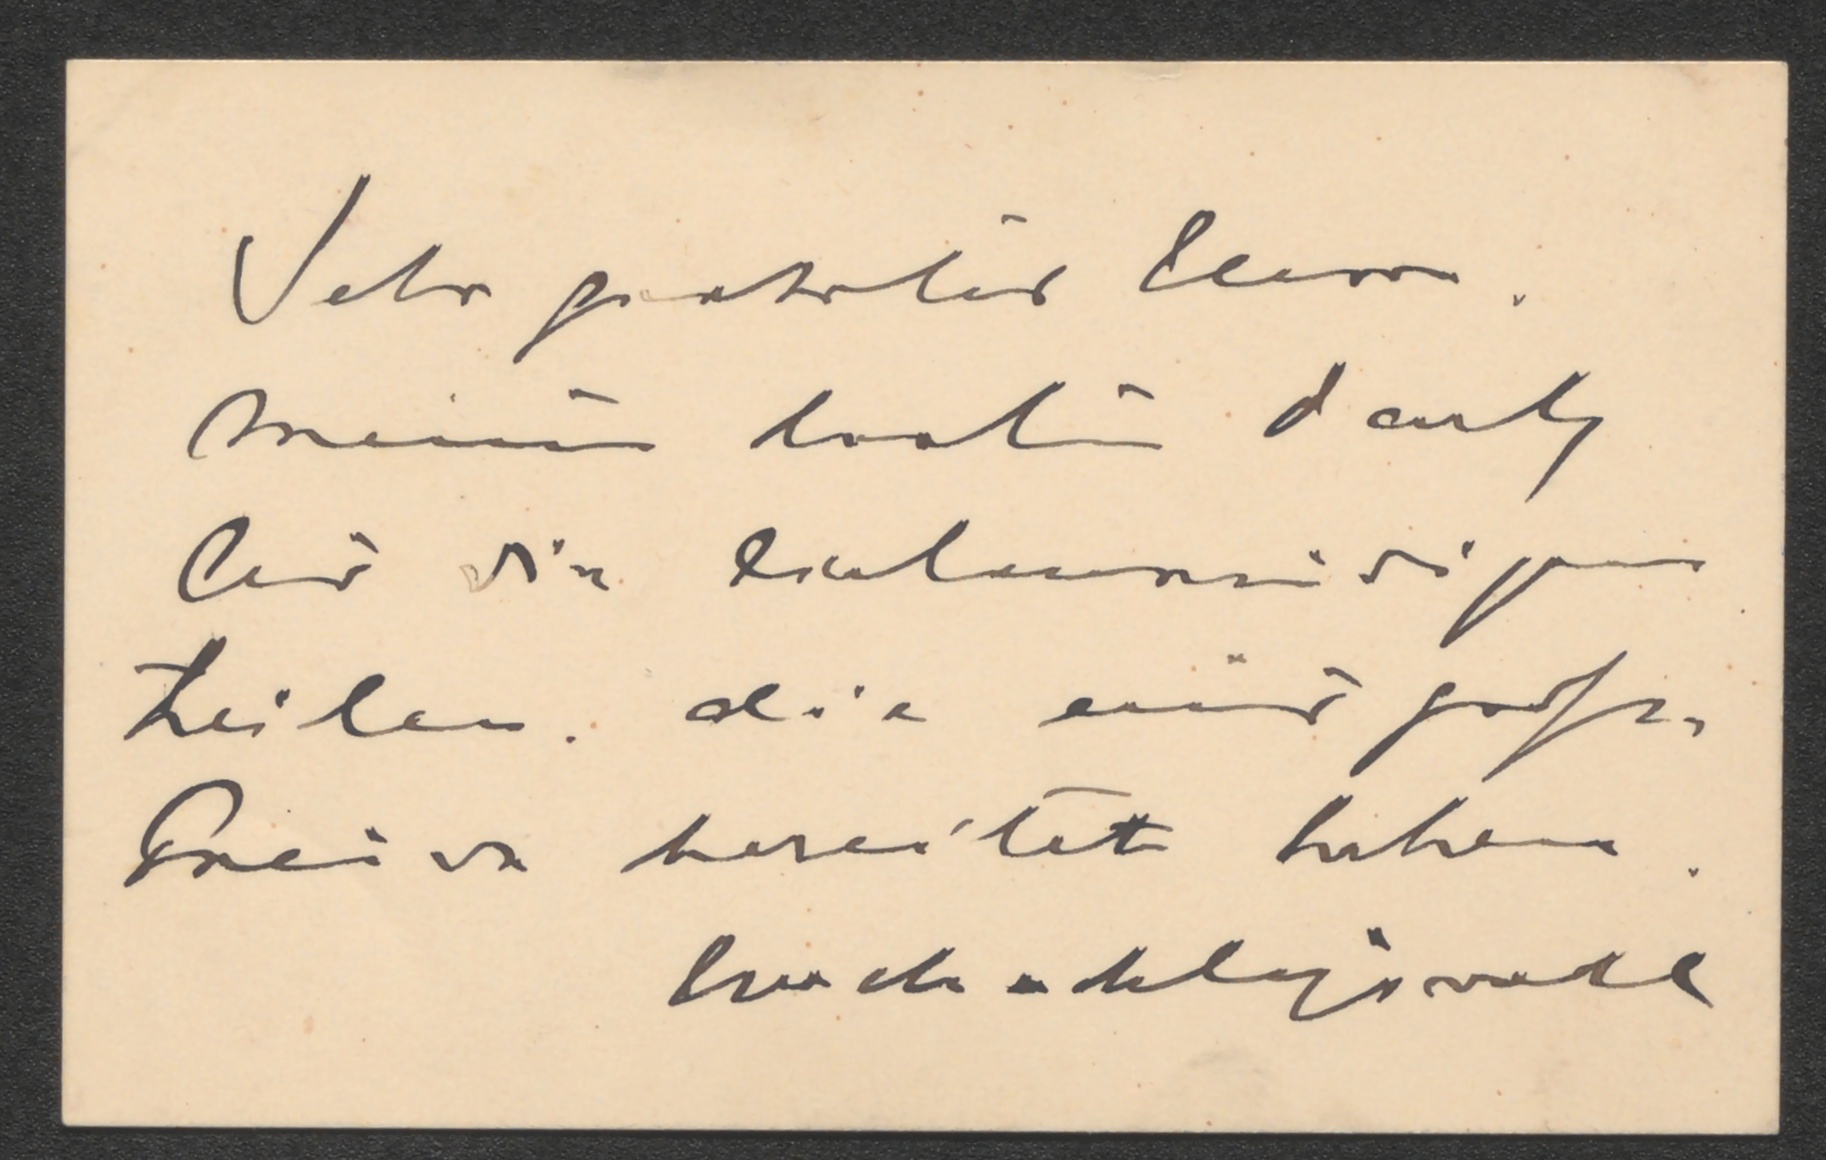 Sehr geehrter Herr.
Meinen besten Dank
für die liebenswürdigen
Zeilen. die mir große
Freude bereitet haben.